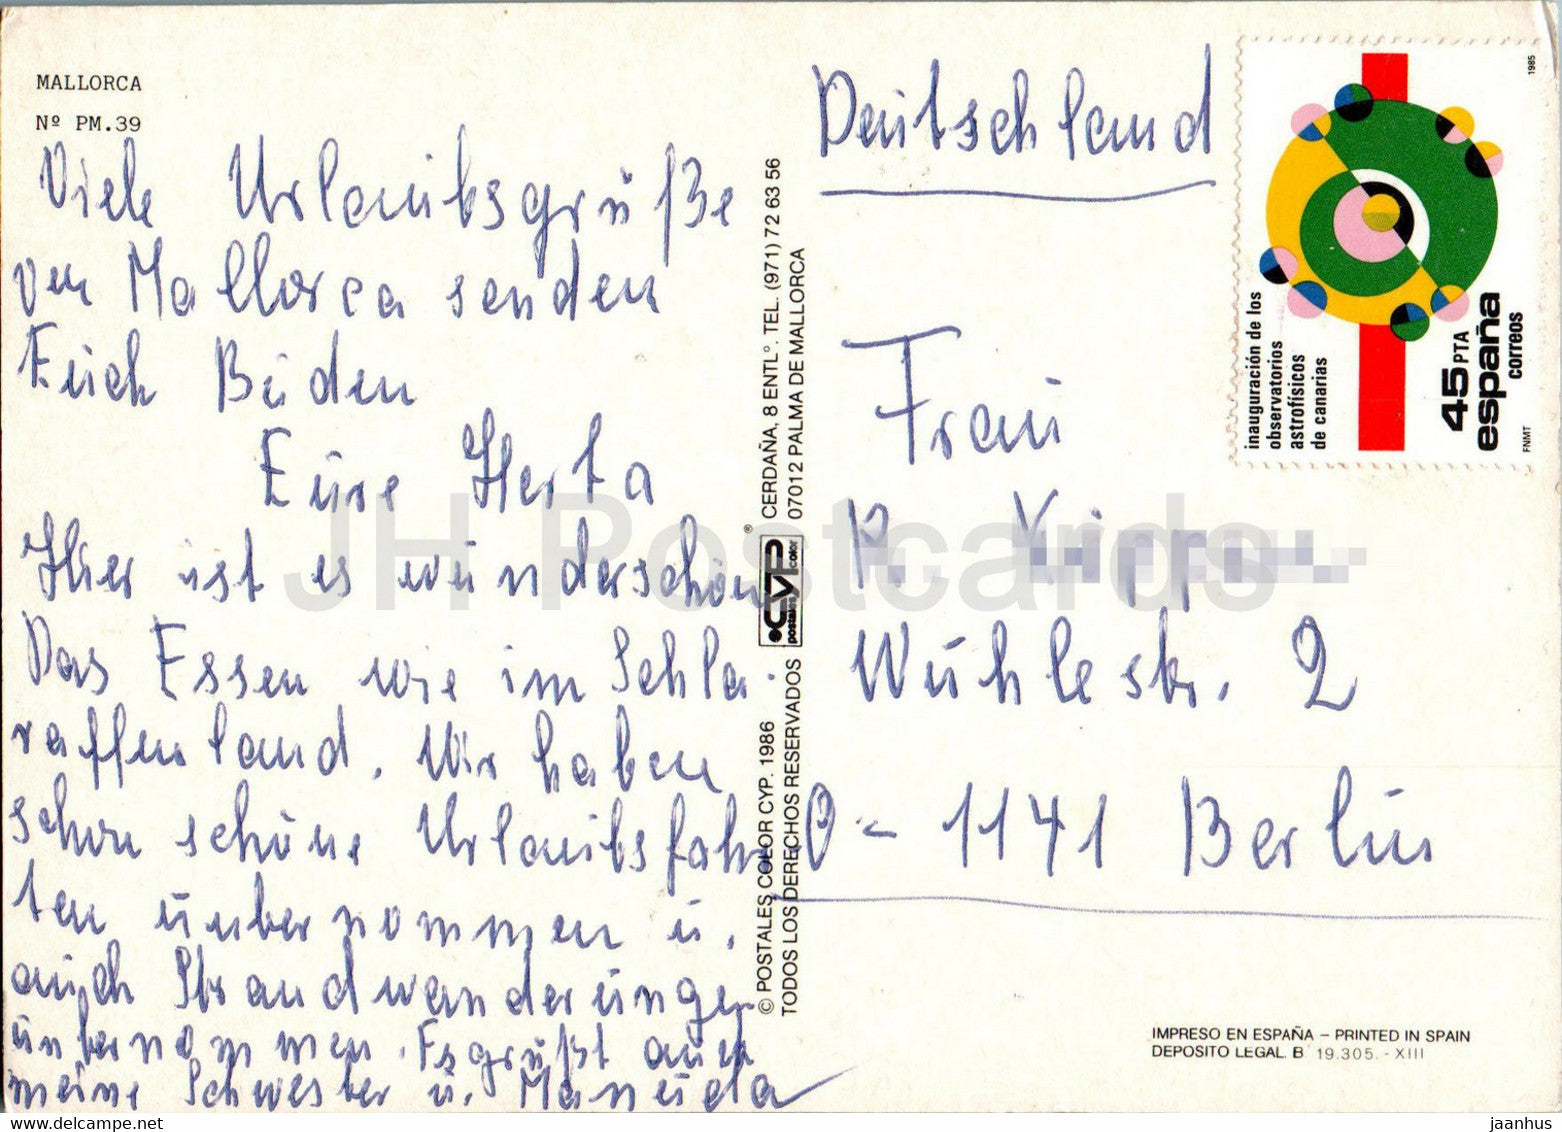 MALLORCA
Nº PM.39
Viele Urlaubsgrüße
von Mallorca senden
Euch Beiden
Eure Herta
Hier ist es wunderschön
Das Essen wie im Schla-
raffenland. Wir haben
schon schöne Urlaubsfahr
ten unternommen u.
auch Strandwanderungen
unternommen. Es grüßt auch
meine Schwester u. Manuela
CERDAÑA, 8 ENTLº. TEL. (971) 72 63 56
07012 PALMA DE MALLORCA
CYP
postales color
®
© POSTALES COLOR CYP. 1986
TODOS LOS DERECHOS RESERVADOS
Deutschland
Frau
R.
Wuhlestr. 2
O - 1141 Berlin
1985
inauguración de los
observatorios
astrofísicos
de canarias
45 PTA
españa
correos
FNMT
IMPRESO EN ESPAÑA – PRINTED IN SPAIN
DEPOSITO LEGAL. B 19.305. - XIII
JH Postcards
delcampe.net
jaanhus